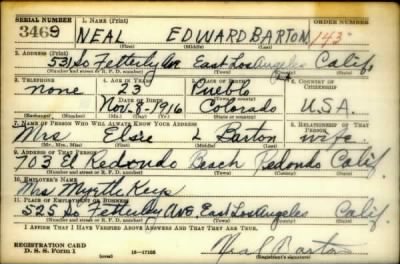 SERIAL NUMBER 1. NAME (Print) ORDER NUMBER
3469 NEAL EDWARD BARTON 143
(First) (Middle) (Last)
2. ADDRESS (Print)
531 So Fetterly Av. East Los Angeles Calif.
(Number and street or R. F. D. number) (Town) (County) (State)
3. TELEPHONE 4. AGE IN YEARS 5. PLACE OF BIRTH 6. COUNTRY OF CITIZENSHIP
none 23 Pueblo
DATE OF BIRTH (Town or county)
Nov. 8-1916 Colorado U.S.A.
(Exchange) (Number) (Mo.) (Day) (Yr.) (State or country)
7. NAME OF PERSON WHO WILL ALWAYS KNOW YOUR ADDRESS 8. RELATIONSHIP OF THAT PERSON
Mrs Elsie L Barton wife
(Mr., Mrs., Miss) (First) (Middle) (Last)
9. ADDRESS OF THAT PERSON
703 El Redondo Beach Redondo Calif.
(Number and street or R. F. D. number) (Town) (County) (State)
10. EMPLOYER'S NAME
Mrs Myrtle Keys
11. PLACE OF EMPLOYMENT OR BUSINESS
525 S. Fetterly Ave. East Los Angeles Calif.
(Number and street or R. F. D. number) (Town) (County) (State)
I AFFIRM THAT I HAVE VERIFIED ABOVE ANSWERS AND THAT THEY ARE TRUE.
REGISTRATION CARD
D. S. S. Form 1 16-17105 Neal Barton